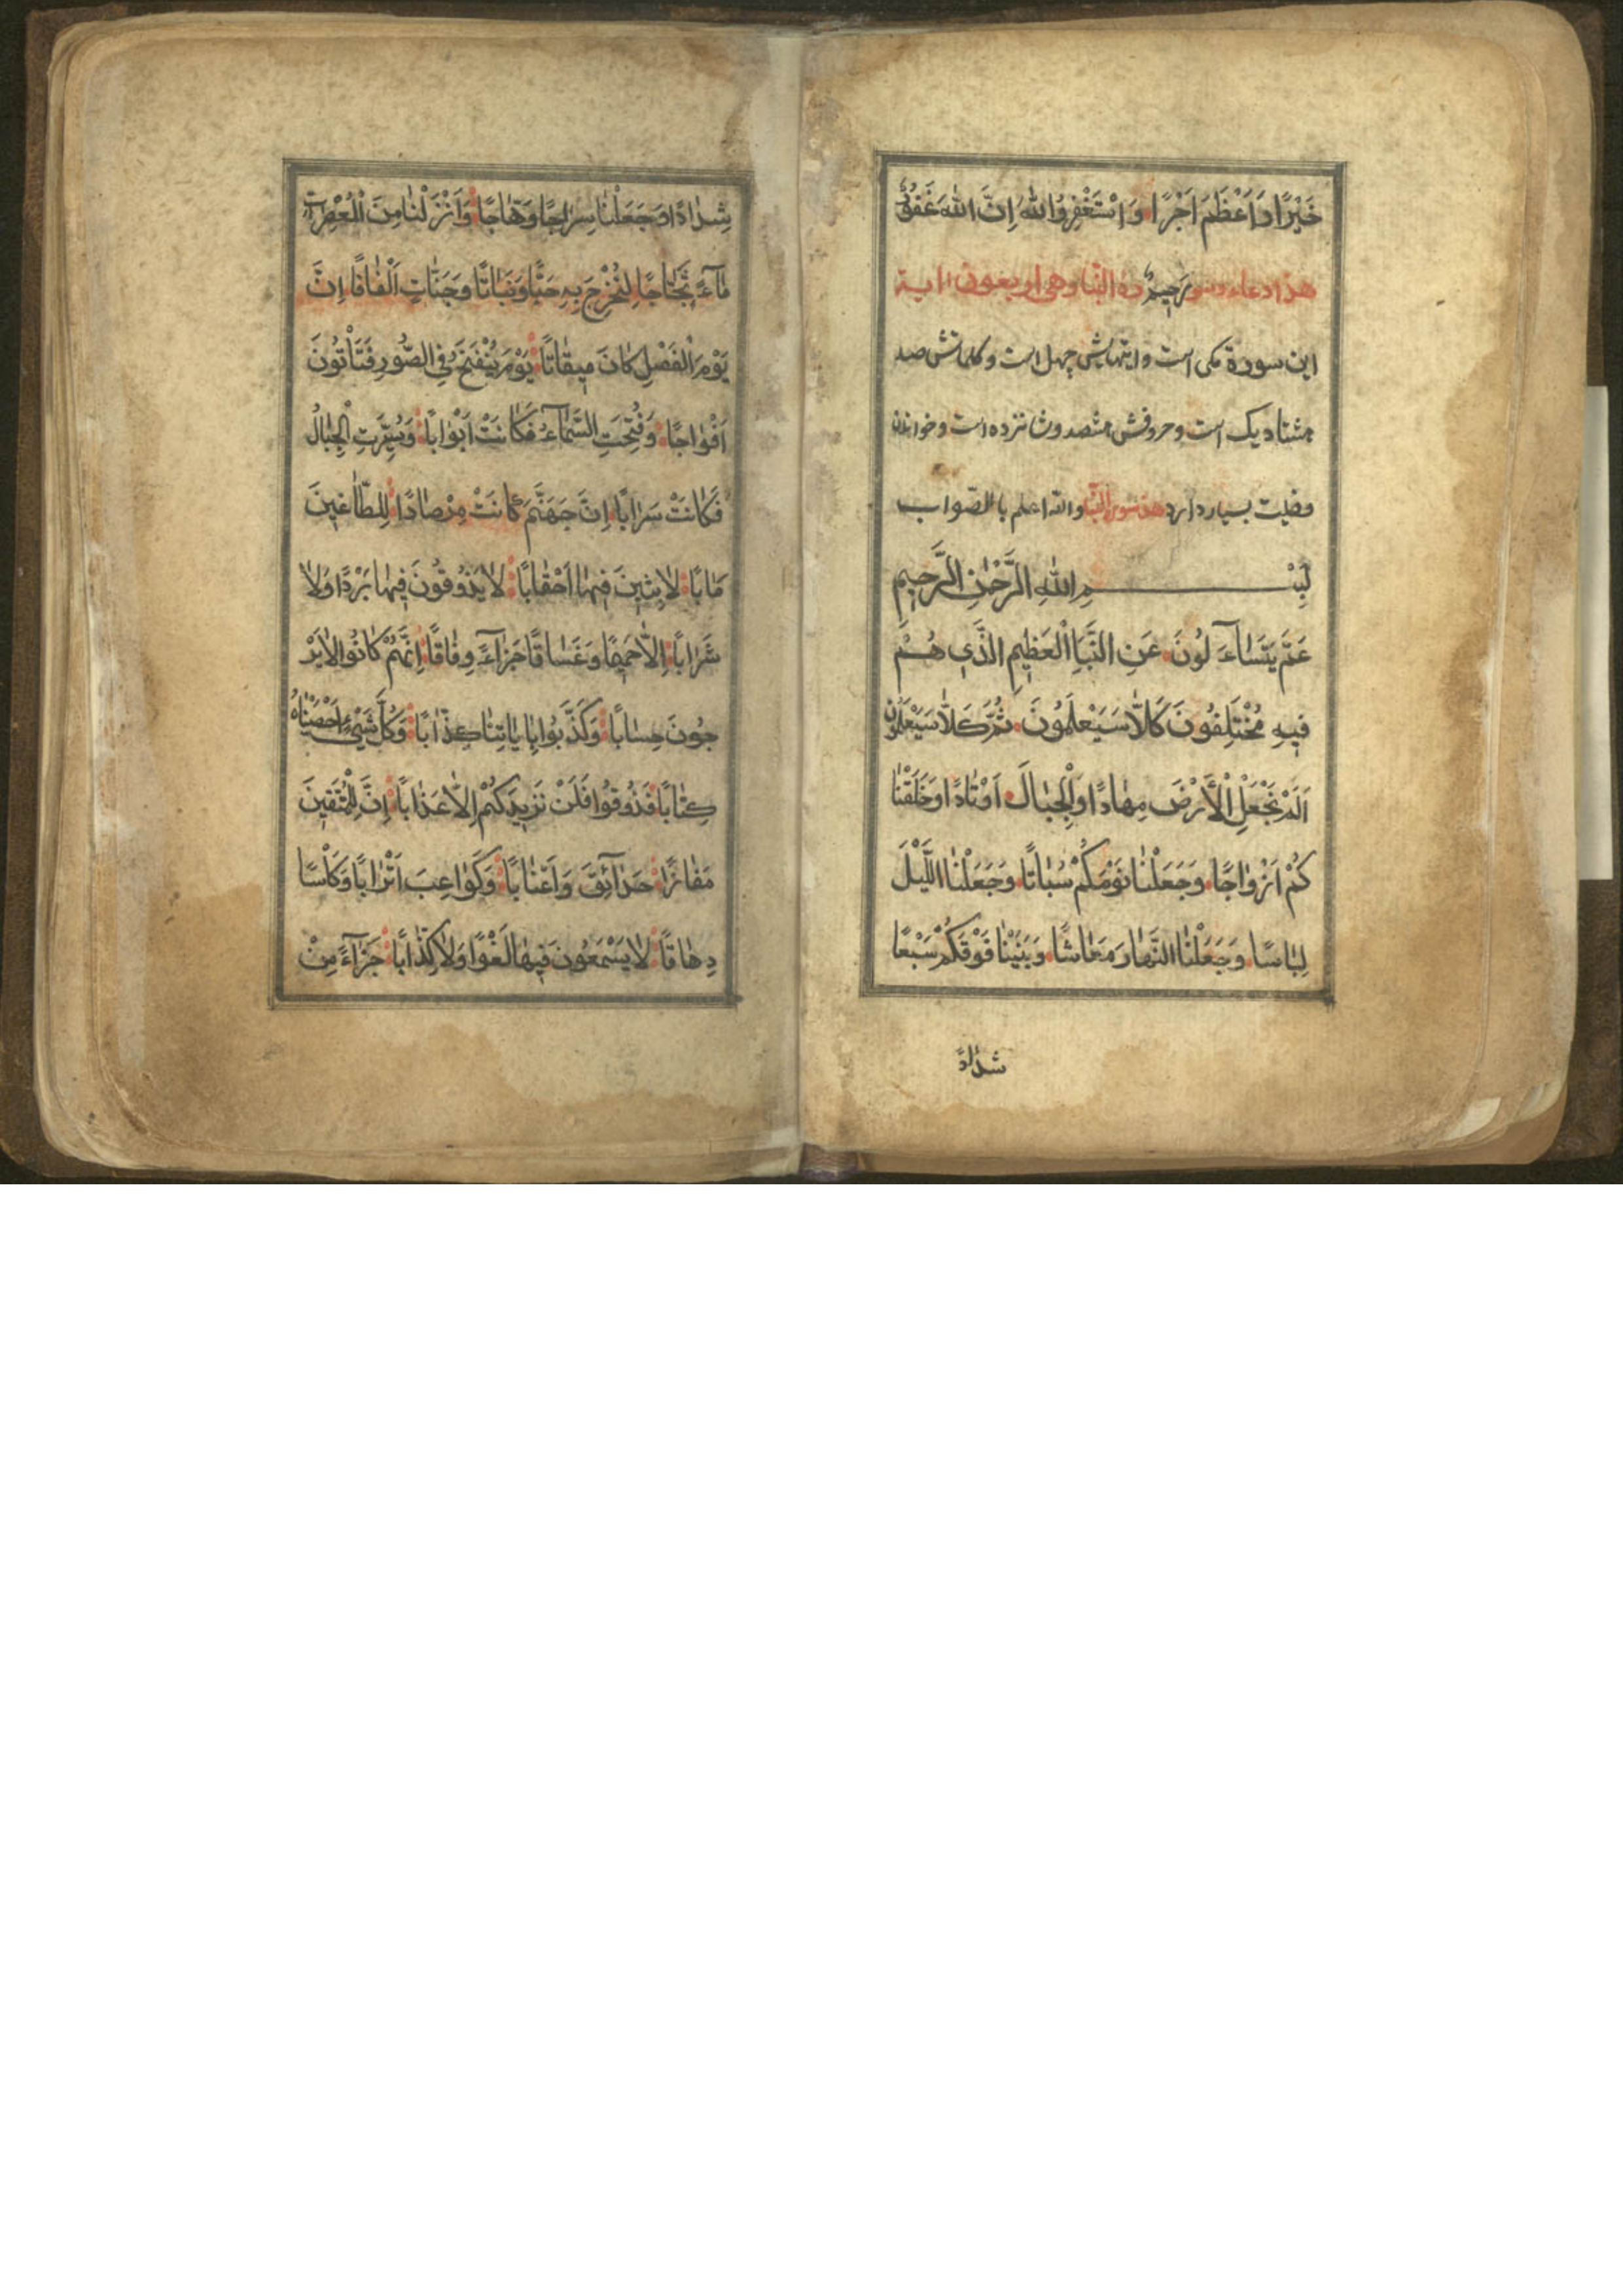 خَيْرًا وَاَعْظَمَ اَجْرًا وَ اسْتَغْفِرُوا اللهَ اِنَّ اللهَ غَفُورٌ
هذا دعاء وسو رَحِيمٌ رة النّبا وهي اربعون اية
این سورة مکی است و ایتهایش چهل است و کلماتش صد
هشتاد یک است و حروفش هشصد و شانزده است و خواندن
فضیلت بسیار دارد هذه سورة النّبا والله اعلم بالصّواب
بِسْمِ اللهِ الرَّحْمٰنِ الرَّحِيمِ
عَمَّ يَتَسَاۤءَلُونَ عَنِ النَّبَاِ الْعَظِيمِ الَّذِي هُمْ
فِيهِ مُخْتَلِفُونَ كَلَّا سَيَعْلَمُونَ ثُمَّ كَلَّا سَيَعْلَمُونَ
اَلَمْ نَجْعَلِ الْاَرْضَ مِهَادًا وَالْجِبَالَ اَوْتَادًا وَخَلَقْنَا
كُمْ اَزْوَاجًا وَجَعَلْنَا نَوْمَكُمْ سُبَاتًا وَجَعَلْنَا اللَّيْلَ
لِبَاسًا وَجَعَلْنَا النَّهَارَ مَعَاشًا وَبَنَيْنَا فَوْقَكُمْ سَبْعًا
شدادً
شِدَادًا وَجَعَلْنَا سِرَاجًا وَهَّاجًا وَاَنْزَلْنَا مِنَ الْمُعْصِرَاتِ
مَاۤءً ثَجَّاجًا لِنُخْرِجَ بِهِ حَبًّا وَنَبَاتًا وَجَنَّاتٍ اَلْفَافًا اِنَّ
يَوْمَ الْفَصْلِ كَانَ مِيقَاتًا يَوْمَ يُنْفَخُ فِي الصُّورِ فَتَأْتُونَ
اَفْوَاجًا وَفُتِحَتِ السَّمَاۤءُ فَكَانَتْ اَبْوَابًا وَسُيِّرَتِ الْجِبَالُ
فَكَانَتْ سَرَابًا اِنَّ جَهَنَّمَ كَانَتْ مِرْصَادًا لِلطَّاغِينَ
مَاٰبًا لَابِثِينَ فِيهَا اَحْقَابًا لَا يَذُوقُونَ فِيهَا بَرْدًا وَلَا
شَرَابًا اِلَّا حَمِيمًا وَغَسَاقًا جَزَاۤءً وِفَاقًا اِنَّهُمْ كَانُوا لَا يَرْ
جُونَ حِسَابًا وَكَذَّبُوا بِاٰيَاتِنَا كِذَّابًا وَكُلَّ شَيْءٍ اَحْصَيْنَاهُ
كِتَابًا فَذُوقُوا فَلَنْ نَزِيدَكُمْ اِلَّا عَذَابًا اِنَّ لِلْمُتَّقِينَ
مَفَازًا حَدَاۤئِقَ وَاَعْنَابًا وَكَوَاعِبَ اَتْرَابًا وَكَأْسًا
دِهَاقًا لَا يَسْمَعُونَ فِيهَا لَغْوًا وَلَا كِذَّابًا جَزَاۤءً مِنْ